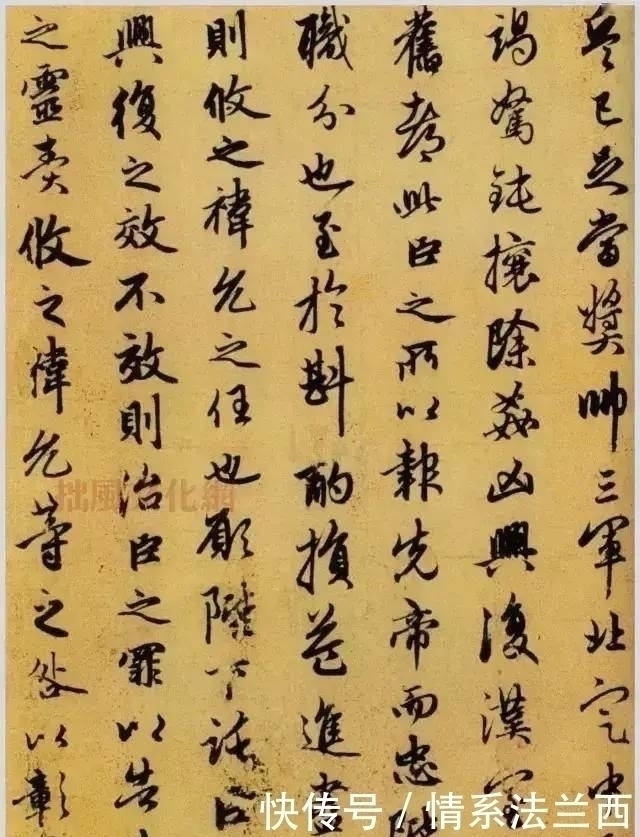 兵已足當獎帥三軍北定中
竭駑鈍攘除姦凶興復漢室
舊都此臣之所以報先帝而忠陛
職分也至於斟酌損益進盡
則攸之禕允之任也願陛下託臣
興復之效不效則治臣之罪以告
之靈責攸之禕允等之咎以彰
拙風文化網
快传号/情系法兰西